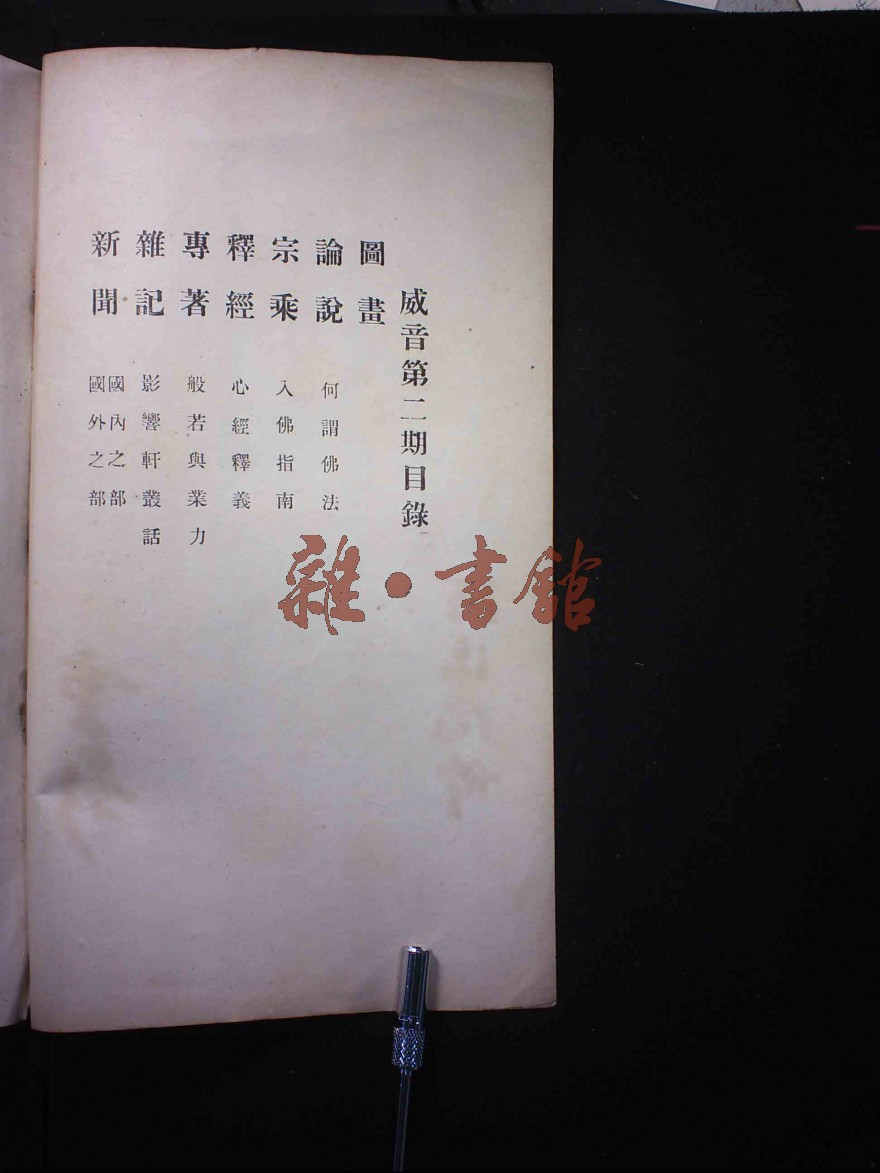 威音第二期目錄
圖畫
論說 何謂佛法
宗乘 入佛指南
釋經 心經釋義
專著 般若與業力
雜記 影響軒叢話
新聞 國內之部
國外之部
雜·書館